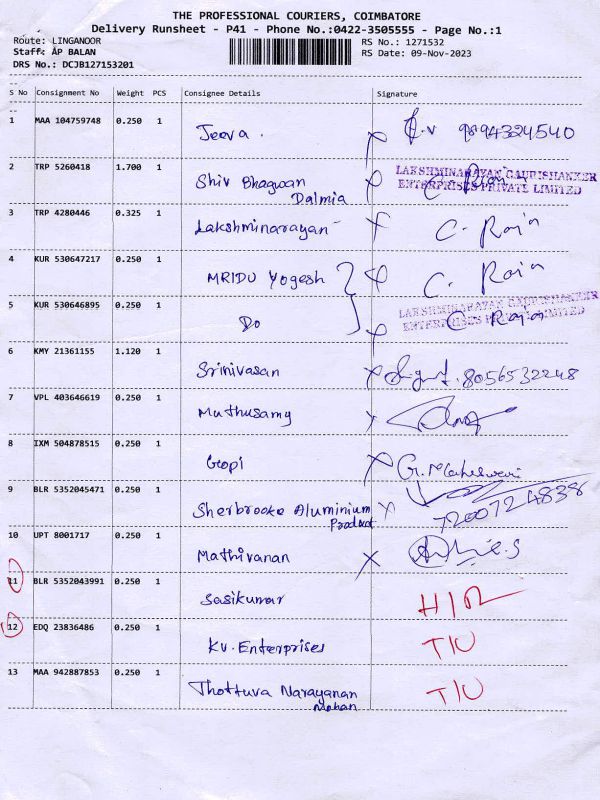 THE PROFESSIONAL COURIERS, COIMBATORE
Delivery Runsheet - P41 - Phone No.:0422-3505555 - Page No.:1
Route: LINGANOOR RS No.: 1271532
Staff: AP BALAN RS Date: 09-Nov-2023
DRS No.: DCJB127153201
S No Consignment No Weight PCS Consignee Details Signature
1 MAA 104759748 0.250 1 Jeeva. 9894324540
2 TRP 5260418 1.700 1 Shiv Bhagwan C. Raja
Dalmia
LAKSHMINARAYAN GAURISHANKER
ENTERPRISES PRIVATE LIMITED
3 TRP 4280446 0.325 1 Lakshminarayan C. Raja
4 KUR 530647217 0.250 1 MRIDU Yogesh C. Raja
LAKSHMINARAYAN GAURISHANKER
ENTERPRISES PRIVATE LIMITED
5 KUR 530646895 0.250 1 Do C Raja
6 KMY 21361155 1.120 1 Srinivasan 8056532248
7 VPL 403646619 0.250 1 Muthusamy
8 IXM 504878515 0.250 1 Gopi G. Maheswari
9 BLR 5352045471 0.250 1 Sherbrooke Aluminium 7200724838
Product
10 UPT 8001717 0.250 1 Mathivanan
11 BLR 5352043991 0.250 1 Sasikumar
12 EDQ 23836486 0.250 1 KV. Enterprises T/U
13 MAA 942887853 0.250 1 Thottuva Narayanan T/U
Mohan